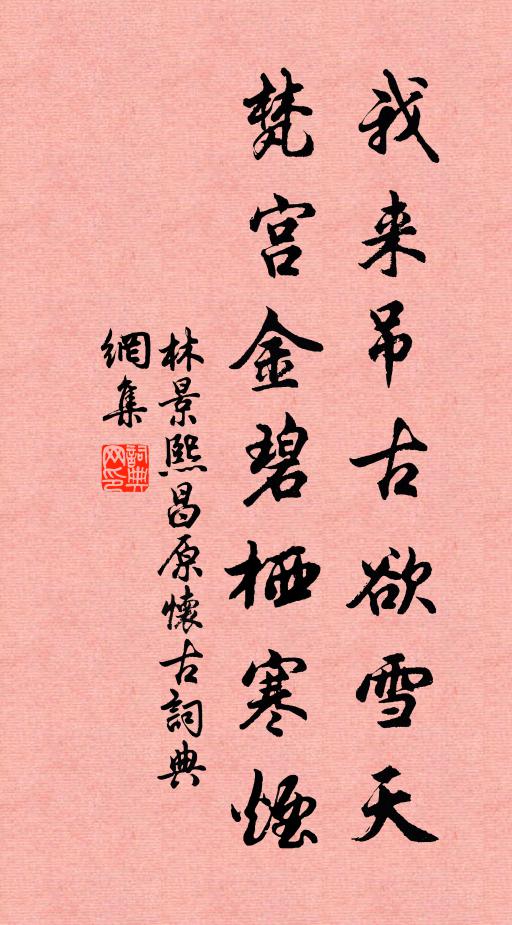 我来吊古欲雪天
梵宫金碧栖寒烟
林景熙昌原懷古詞典
網集
詞典
网印